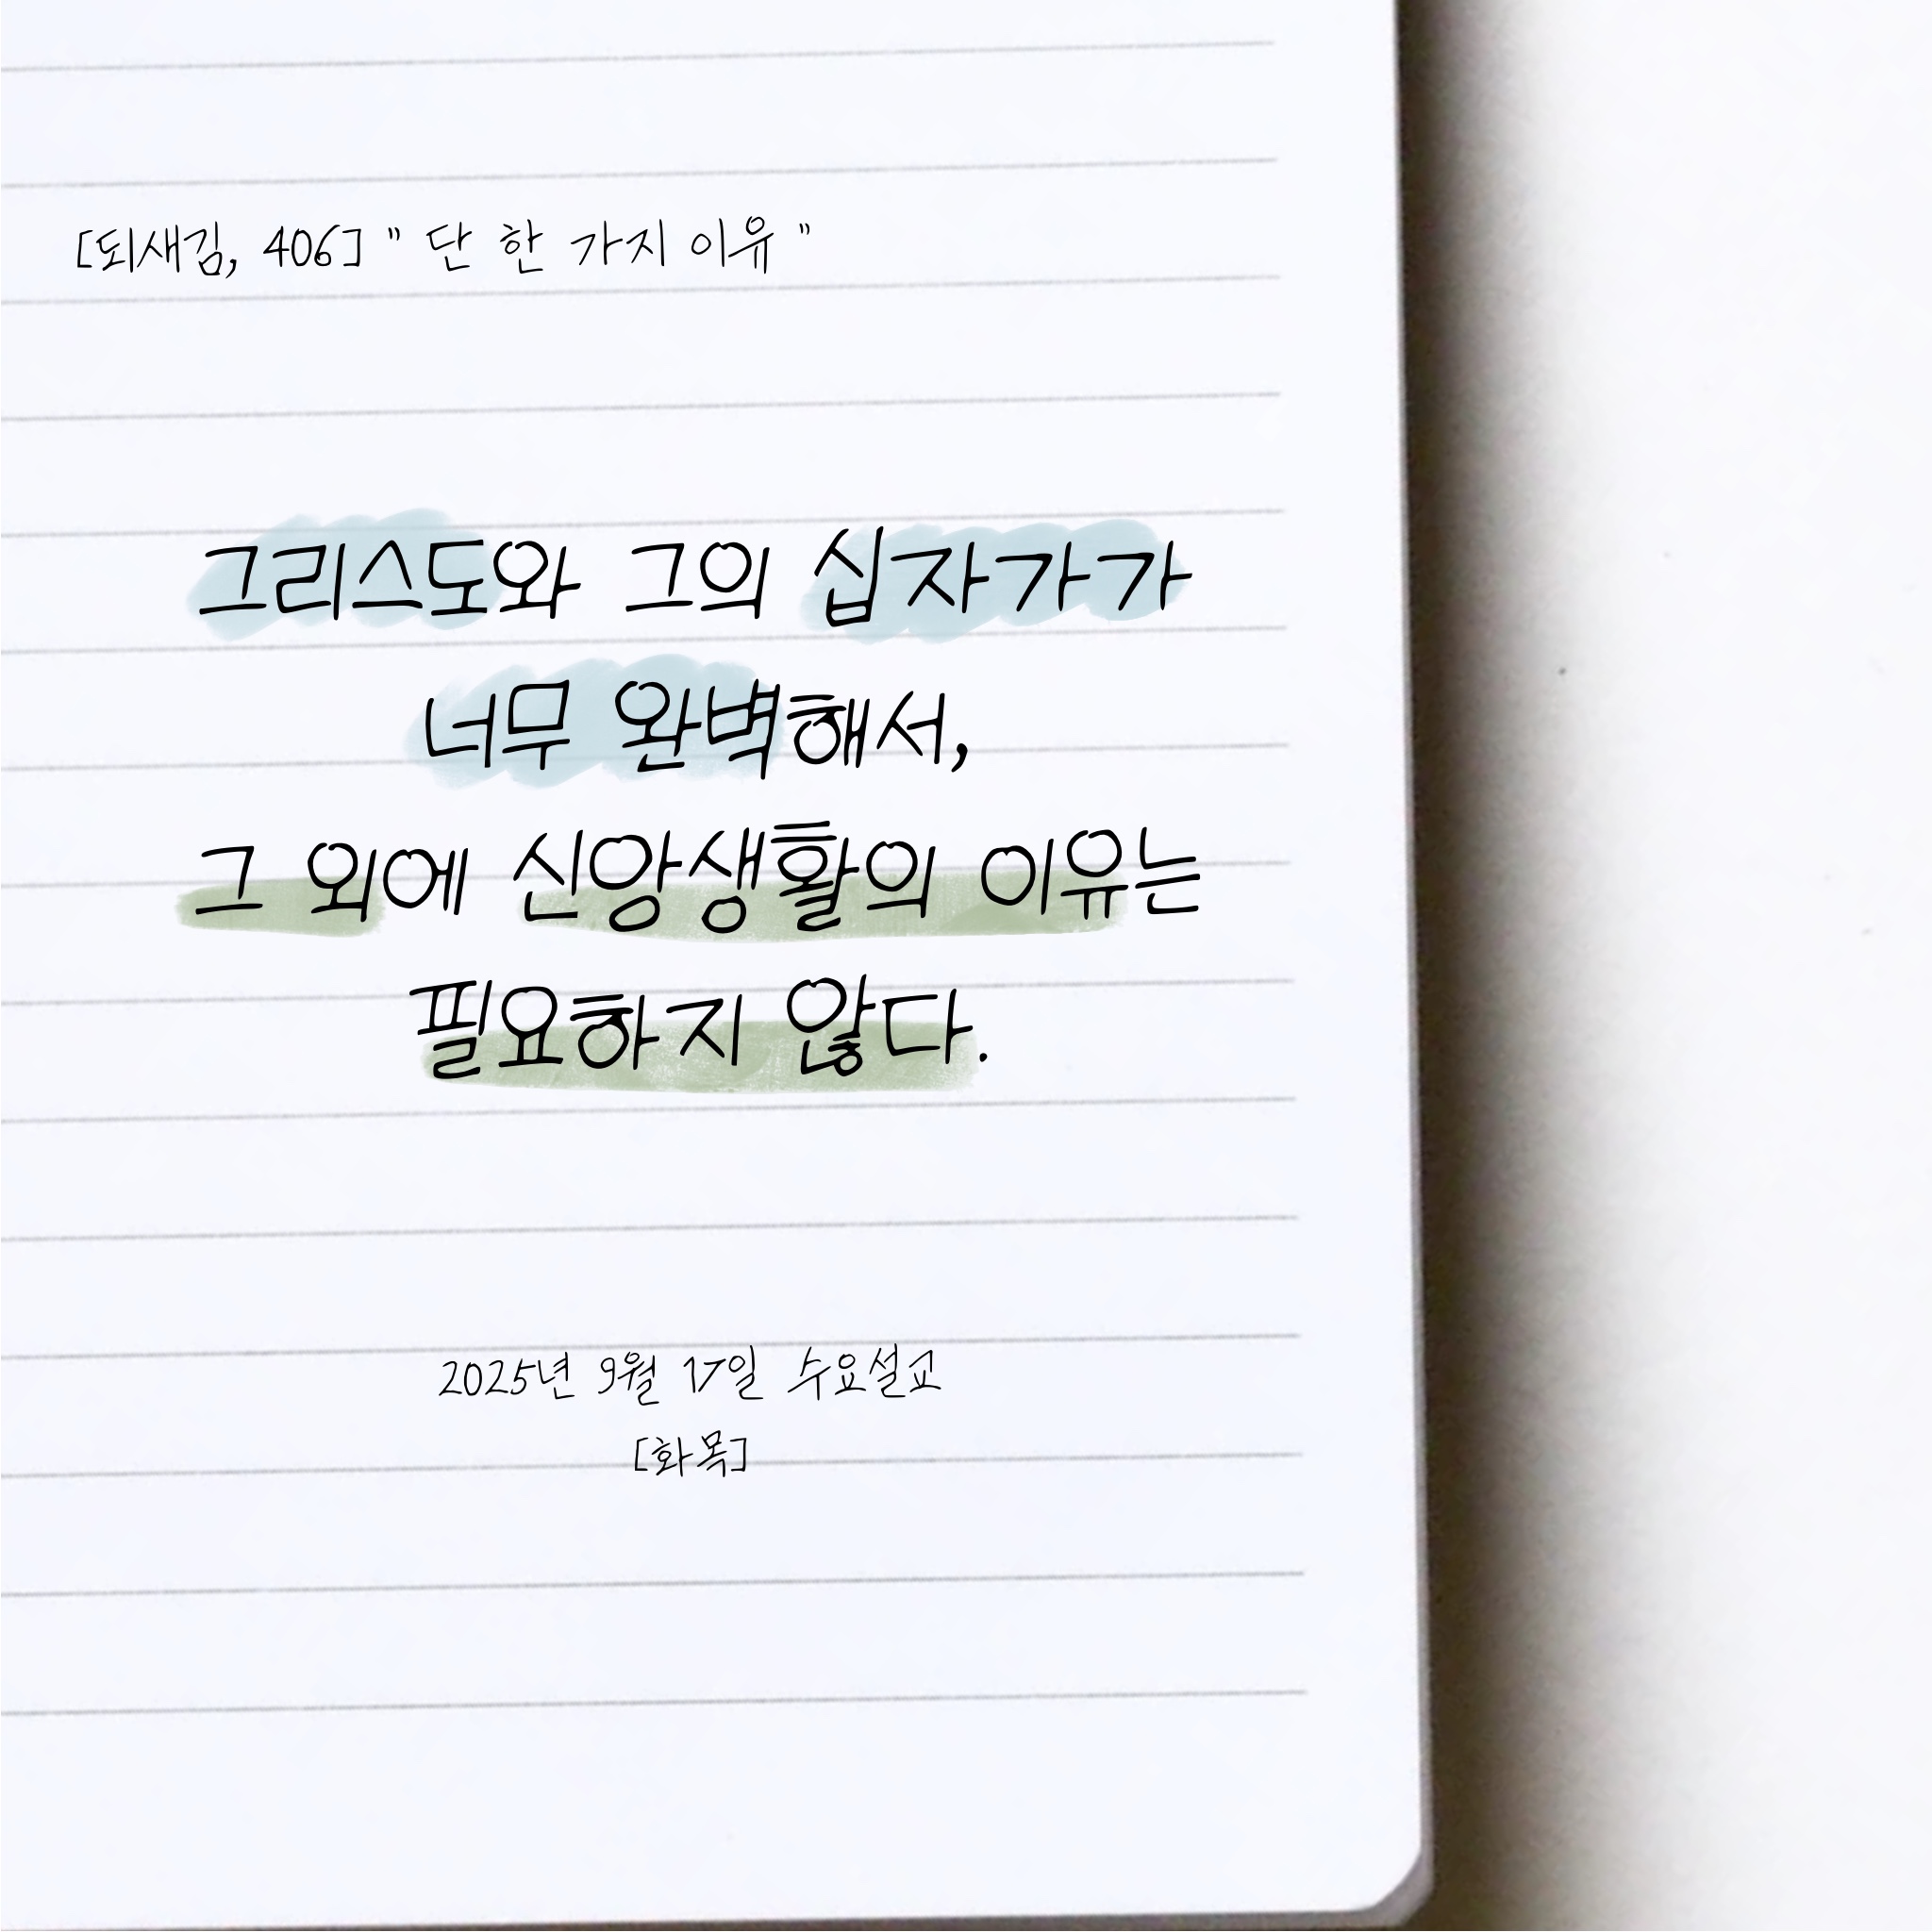 [되새김, 406] " 단 한 가지 이유 "
그리스도와 그의 십자가가
너무 완벽해서,
그 외에 신앙생활의 이유는
필요하지 않다.
2025년 9월 17일 수요설교
[화목]